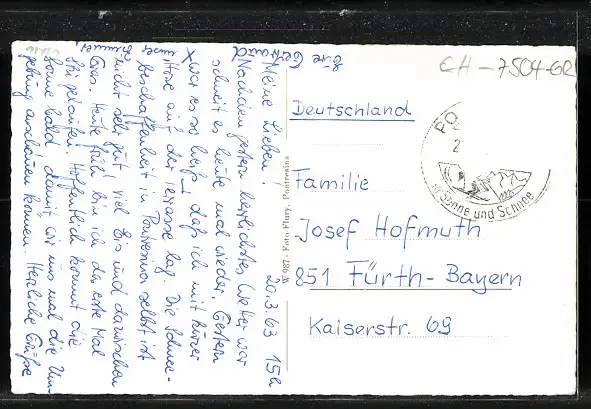 CH-7504-GR
Deutschland
Familie
Josef Hofmuth
851 Fürth-Bayern
Kaiserstr. 69
PO
in Sonne und Schnee
W 987 · Foto Flury, Pontresina
20.3.63 15h
Meine Lieben!
Nachdem gestern herrlichstes Wetter war
schneit es heute mal wieder. Gestern
war es so heiß, daß ich mit kurzer
Hose auf der Terrasse lag. Die Schnee-
beschaffenheit in Pontresina selbst ist
nicht sehr gut, viel Eis und dazwischen
Gras. Heute früh bin ich das erste Mal
Ski gelaufen. Hoffentlich kommt die
Sonne bald, damit wir uns mal die Um-
gebung anschauen können. Herzliche Grüße
Eure Gertraud